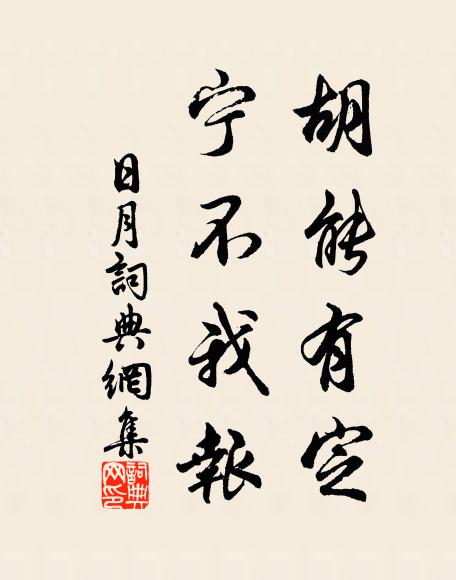 胡能有定
宁不我報
日月詞典網集
詞典网印